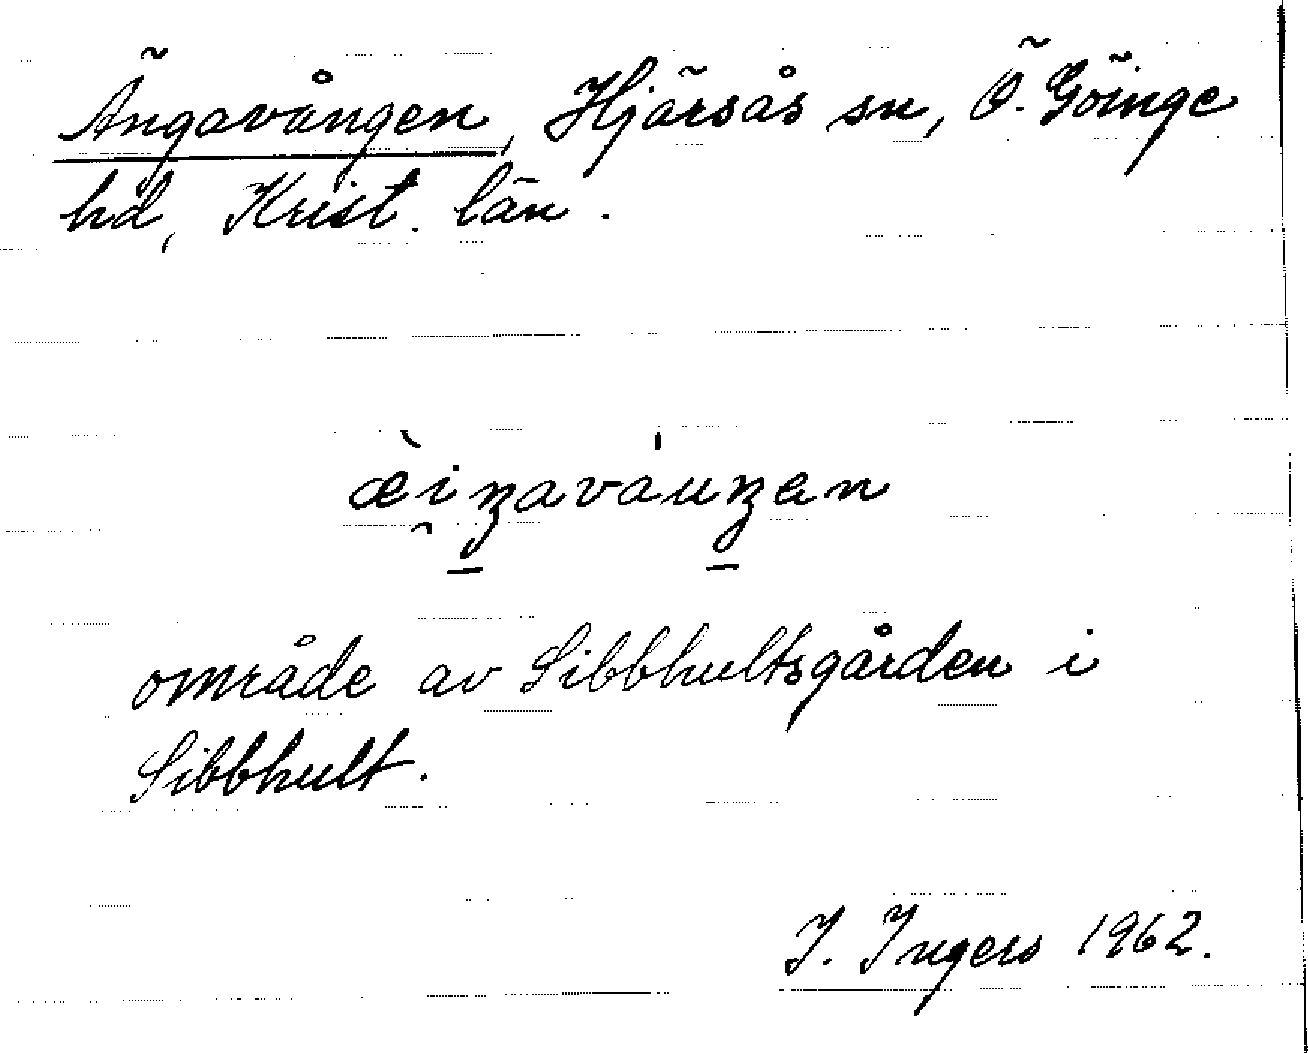 Ängavången, Hjärsås sn, Ö. Göinge
hd, Krist. län.
æ̀i̯ŋaváuŋen
område av Sibbhultsgården i
Sibbhult.
I. Ingers 1962.